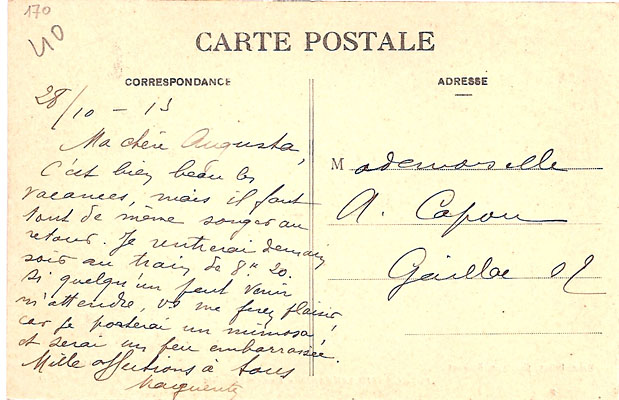 170
40
CARTE POSTALE
CORRESPONDANCE
28/10 - 13
Ma chère Augusta,
C'est bien beau les
vacances, mais il faut
tout de même songer au
retour. Je rentrerai demain
soir au train de 8h 20.
Si quelqu'un peut venir
m'attendre, vs me ferez plaisir,
car je porterai un mimosa,
et serai un peu embarrassée.
Mille affections à tous
Marguerite
ADRESSE
Mademoiselle
A. Capon
Gaillac